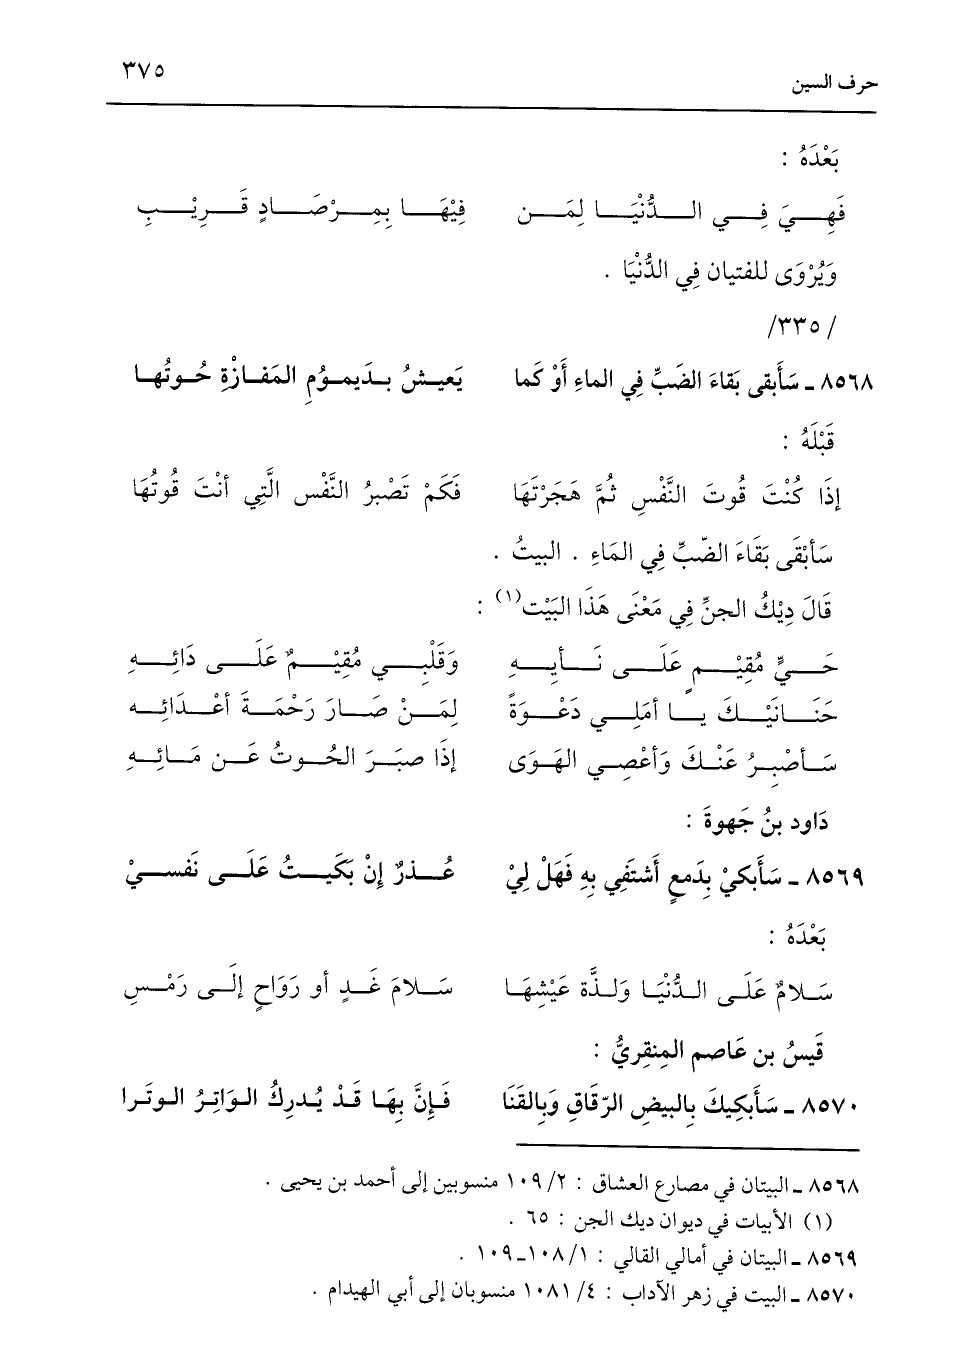 حرف السين ٣٧٥
بَعْدَهُ :
فَهِيَ فِي الدُّنْيَا لِمَن فِيْهَا بِمِرْصَادٍ قَرِيْبِ
وَيُرْوَى للفتيان فِي الدُّنْيَا .
/٣٣٥/
٨٥٦٨ ـ سَأَبقى بَقاءَ الضَبِّ فِي الماءِ أَوْ كما يَعيشُ بِدَيمومِ المَفازْةِ حُوتُها
قَبْلَهُ :
إِذَا كُنْتَ قُوتَ النَّفْسِ ثُمَّ هَجَرْتَهَا فَكَمْ تَصْبرُ النَّفْس الَّتِي أنْتَ قُوتُهَا
سَأبْقَى بَقَاءَ الضّبِّ فِي المَاءِ . البيتُ .
قَالَ دِيْكُ الجنِّ فِي مَعْنَى هَذَا البَيْت(١) :
حَيٌّ مُقِيْمٍ عَلَى نَأيِهِ وَقَلْبِي مُقِيْمٌ عَلَى دَائِهِ
حَنَانَيْكَ يا أمَلِي دَعْوَةً لِمَنْ صَارَ رَحْمَةَ أعْدَائِه
سَأصْبِرُ عَنْكَ وَأعْصِي الهَوَى إذَا صبَرَ الحُوتُ عَن مَائِهِ
دَاود بنُ جَهوةَ :
٨٥٦٩ ـ سَأَبكيْ بِدَمعٍ أَشتَفِي بِهِ فَهَلْ لِيْ عُذرٌ إِنْ بَكَيتُ عَلَى نَفسيْ
بَعْدَهُ :
سَلامٌ عَلَى الدُّنْيَا وَلذَّة عَيْشِهَا سَلامَ غَدٍ أو رَوَاحٍ إلَى رَمْسِ
قَيسُ بن عَاصم المِنقِريُّ :
٨٥٧٠ ـ سَأَبكِيكَ بِالبيضِ الرّقَاقِ وَبِالقَنَا فَإِنَّ بِهَا قَدْ يُدرِكُ الوَاتِرُ الوتَرا
٨٥٦٨ ـ البيتان في مصارع العشاق : ٢/ ١٠٩ منسوبين إلى أحمد بن يحيى .
(١) الأبيات في ديوان ديك الجن : ٦٥ .
٨٥٦٩ ـ البيتان في أمالي القالي : ١/ ١٠٨ـ١٠٩ .
٨٥٧٠ ـ البيت في زهر الآداب : ٤/ ١٠٨١ منسوبان إلى أبي الهيدام .